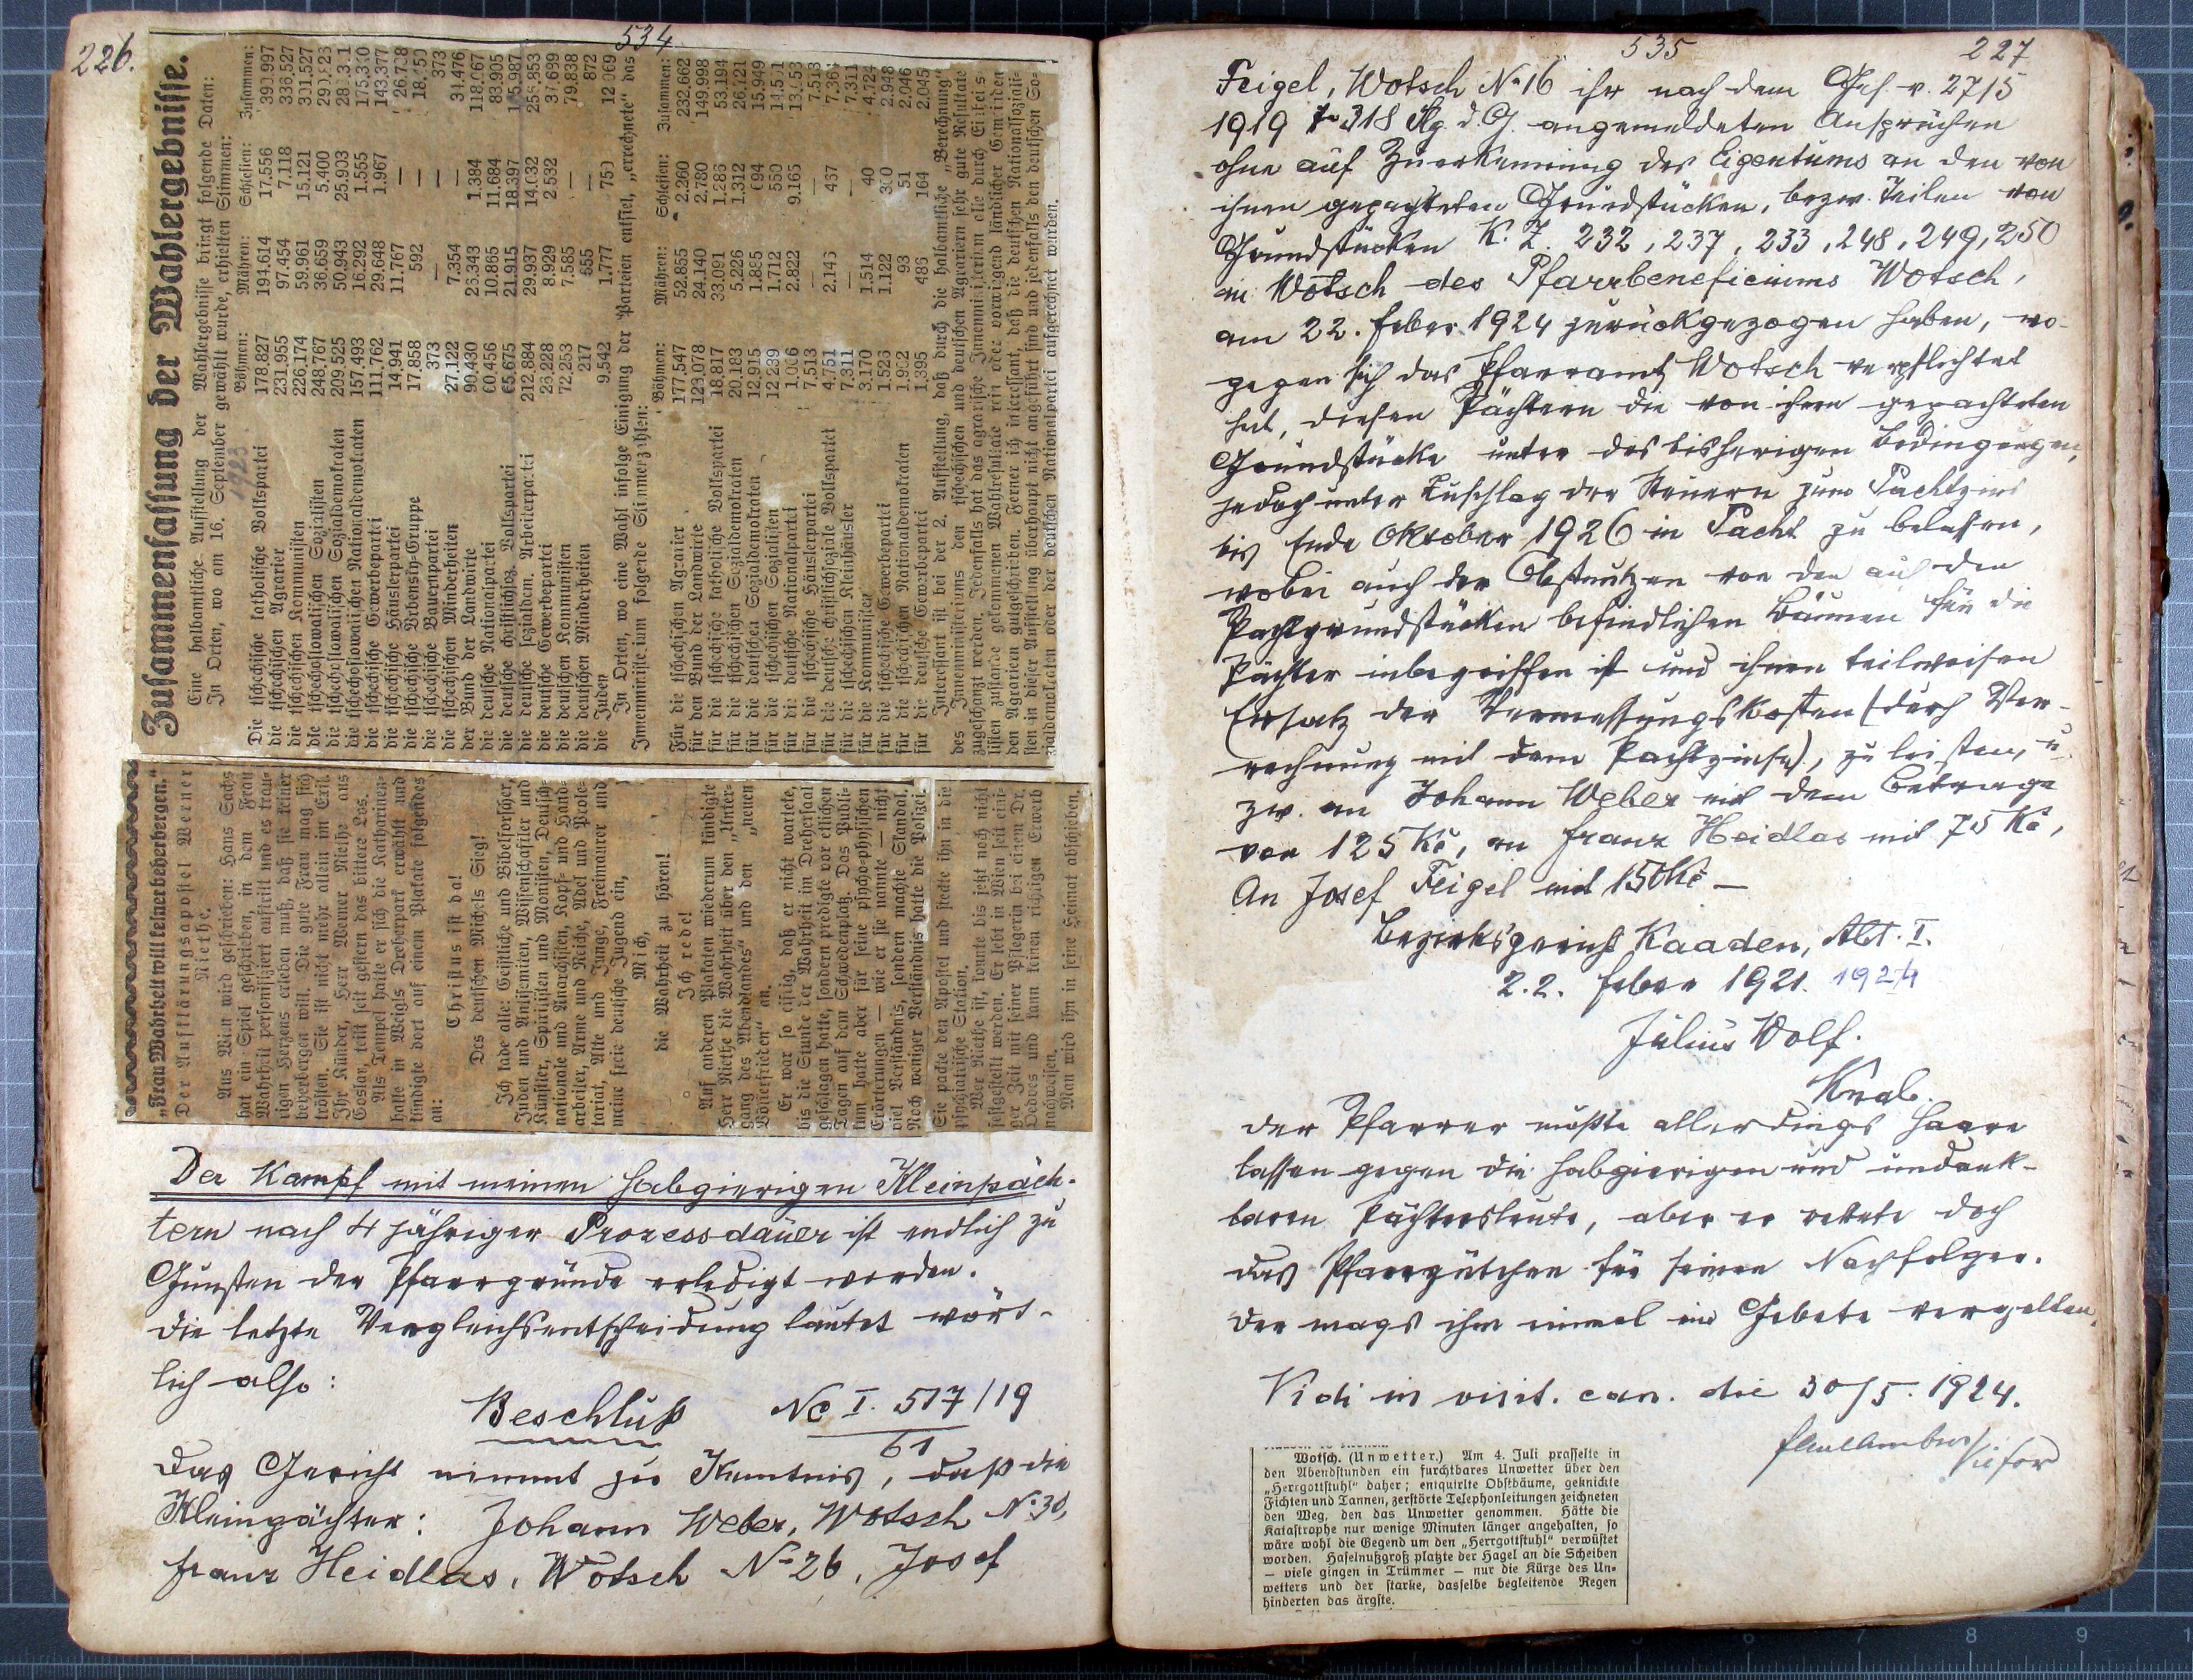 226.
534
Zusammenfassung der Wahlergebnisse.
Eine halbamtliche Aufstellung der Wahlergebnisse bringt folgende Daten:
In Orten, wo am 16. September gewählt wurde, erhielten Stimmen:
1923
Böhmen: Mähren: Schlesien: Zusammen:
Die tschechische katholische Volkspartei 178,827 194,614 17.556 390.997
die tschechischen Agrarier 231,955 97.454 7.118 336,527
die tschechischen Kommunisten 226,174 59,961 15,121 301,527
die tschechoslowakischen Sozialisten 248,767 36.659 5.400
die tschechoslowakischen Sozialdemokraten 209,525 50,943 25.903
die tschechoslowakischen Nationaldemokraten 157,493 16.292 1.555
die tschechische Gewerbepartei 111,762 29,648 1.967 143,377
die tschechische Häuslerpartei 14,941 11.767 —
die tschechische Urbensky-Gruppe 17,858 592 —
die tschechische Bauernpartei 373 — — 373
die tschechischen Minderheiten 27,122 7.354 —
der Bund der Landwirte 90,430 1.384
die deutsche Nationalpartei 60,456 10.865 11.684 83,905
die deutsche christlichsoz. Volkspartei 65,675 21.915 18.397
die deutsche sozialdem. Arbeiterpartei 212,884 29.937 14.032
die deutsche Gewerbepartei 26,228 8.929 2.532
die deutschen Kommunisten 72,253 7.585 — 79,838
die deutschen Minderheiten 217 655 — 872
die Juden 9,542 1.777 750 12 069
In Orten, wo eine Wahl infolge Einigung der Parteien entfiel, „errechnete“ das
Innenministerium folgende Stimmenzahlen:
Böhmen: Mähren: Schlesien: Zusammen:
Für die tschechischen Agrarier 177,547 52.855 2.260 232.662
für den Bund der Landwirte 123,078 24.140 2.780 149.998
für die tschechische katholische Volkspartei 18,817 33.091 1.286 53.194
für die tschechischen Sozialdemokraten 20,183 5.226 1.312
für die deutschen Sozialdemokraten 12,915 1.855 15.949
für die tschechischen Sozialisten 12,239 1.712 550
für die deutsche Nationalpartei 2.822 9.165
für die tschechische Häuslerpartei 7,513 — — 7,513
für die deutsche christlichsoziale Volkspartei 4,751 437
für die tschechischen Kleinhäusler 7,311 — — 7,311
für die Kommunisten 3,170 1.514 40 4,724
für die tschechische Gewerbepartei 1.122
für die tschechischen Nationaldemokraten 1.902 93 51 2.046
für die deutsche Gewerbepartei 1.395 486 164 2.045
Interessant ist bei der 2. Aufstellung, daß durch die halbamtliche „Berechnung“
des Innenministeriums den tschechischen und deutschen Agrariern sehr gute Resultate
zugeschanzt werden. Jedenfalls hat das agrarische Innenministerium alle durch Einheits-
listen zustande gekommenen Wahlresultate rein oder vorwiegend ländlicher Gemeinden
den Agrariern gutgeschrieben. Ferner ist interessant, daß die deutschen Nationalsoziali-
sten in dieser Aufstellung überhaupt nicht angeführt sind und jedenfalls den deutschen So-
zialdemokraten oder der deutschen Nationalpartei aufgerechnet wurden.
„Frau Wahrheit will keiner beherbergen.“
Der Aufklärungsapostel Werner
Niethe.
Aus Wien wird geschrieben: Hans Sachs
hat ein Spiel geschrieben, in dem Frau
Wahrheit personifiziert auftritt und es trau-
rigen Herzens erleben muß, daß sie keiner
beherbergen will. Die gute Frau mag sich
trösten. Sie ist nicht mehr allein im Exil.
Ihr Künder, Herr Werner Niethe aus
Goslar, teilt seit gestern das bittere Los.
Als Tempel hatte er sich die Katharinen-
halle in Weigls Dreherpark erwählt und
kündigte dort auf einem Plakate folgendes
an:
Christus ist da!
Des deutschen Michels Sieg!
Ich lade alle: Geistliche und Bibelforscher,
Juden und Antisemiten, Wissenschaftler und
Künstler, Spiritisten und Monisten, Deutsch-
nationale und Anarchisten, Kopf- und Hand-
arbeiter, Arme und Reiche, Adel und Prole-
tariat, Alte und Junge, Freimaurer und
meine freie deutsche Jugend ein,
Mich,
die Wahrheit zu hören!
Ich rede!
Auf anderen Plakaten wiederum kündigte
Herr Niethe die Wahrheit über den „Unter-
gang des Abendlandes“ und den „neuen
Völkerfrieden“ an.
Er war so eifrig, daß er nicht wartete,
bis die Stunde der Wahrheit im Drehersaal
geschlagen hatte, sondern predigte vor etlichen
Tagen auf dem Schwedenplatz. Das Publi-
kum hatte aber für seine psycho-physischen
Erörterungen — wie er sie nannte — nicht
viel Verständnis, sondern machte Skandal.
Noch weniger Verständnis hatte die Polizei.
Sie packte den Apostel und steckte ihn in die
psychiatrische Station.
Wer Niethe ist, konnte bis jetzt noch nicht
festgestellt werden. Er lebt in Wien seit eini-
ger Zeit mit seiner Pflegerin bei einem Dr.
Dedres und kann keinen richtigen Erwerb
nachweisen.
Man wird ihn in seine Heimat abschieben.
Der Kampf mit meinen habgierigen Kleinpäch-
tern nach 4 jähriger Prozessdauer ist endlich zu
Gunsten der Pfarrgründe erledigt worden.
Die letzte Vergleichsentscheidung lautet wört-
lich also:
Beschluß Nc I. 517/19
61
Das Gericht nimmt zur Kenntnis, daß die
Kleinpächter: Johann Weber, Wotsch No 30,
Franz Heidlas, Wotsch No 26, Josef
535
227
Feigel, Wotsch No 16 ihr nach dem Ges. v. 27/5
1919 318 Slg. d. G. angemeldeten Ansprüchen
ohne auf Zuerkennung des Eigentums an den von
ihnen gepachteten Grundstücken, bezw. Teilen von
Grundstücken K. Z. 232, 237, 233, 248, 249, 250
in Wotsch des Pfarrbeneficiums Wotsch,
am 22. Feber 1924 zurückgezogen haben, wo-
gegen sich das Pfarramt Wotsch verpflichtet
hat, diesen Pächtern die von ihnen gepachteten
Grundstücke unter des bisherigen Bedingungen,
jedoch unter Zuschlag der Steuern zum Pachtzins
bis Ende Oktober 1926 in Pacht zu belassen,
wobei auch der Obstnutzen von den auf den
Pachtgrundstücken befindlichen Bäumen für die
Pächter inbegriffen ist und ihnen teilweisen
Ersatz der Vermessungskosten (durch Ver-
rechnung mit dem Pachtzinse), zu leisten, u.
zw. an Johann Weber mit dem Betrage
von 125 Kč, an Franz Heidlas mit 75 Kč,
An Josef Feigel mit 150 Kč —
Bezirksgericht Kaaden, Abt. I.
22. Feber 1921. 1924
Julius Wolf.
Der Pfarrer mußte allerdings Haare
lassen gegen die habgierigen und undank-
baren Pächtersleute, aber er rettete doch
das Pfarrgütchen für seinen Nachfolger.
Der mags ihm einmal im Gebete vergelten.
Vidi in visit. can. die 30/5. 1924.
Wotsch. (Unwetter.) Am 4. Juli prasselte in
den Abendstunden ein furchtbares Unwetter über den
„Herrgottstuhl“ daher; entquirlte Obstbäume, geknickte
Fichten und Tannen, zerstörte Telephonleitungen zeichneten
den Weg, den das Unwetter genommen. Hätte die
Katastrophe nur wenige Minuten länger angehalten, so
wäre wohl die Gegend um den „Herrgottstuhl“ verwüstet
worden. Haselnußgroß platzte der Hagel an die Scheiben
— viele gingen in Trümmer — nur die Kürze des Un-
wetters und der starke, dasselbe begleitende Regen
hinderten das ärgste.